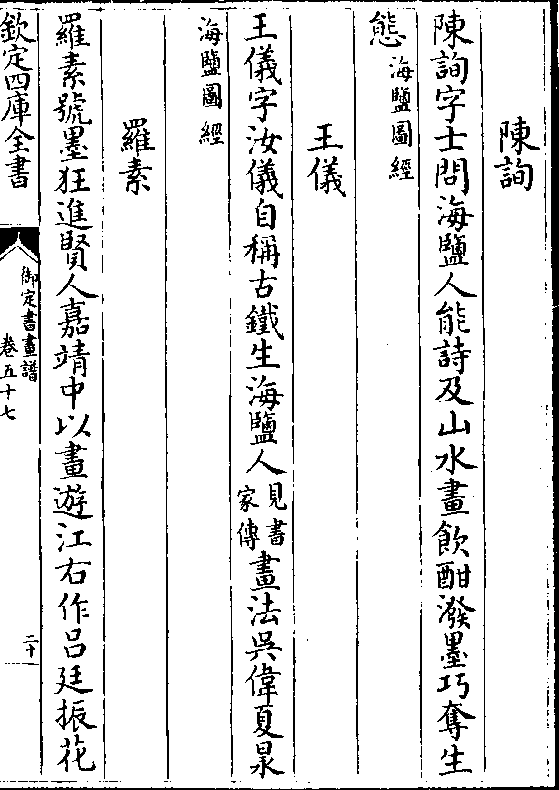 陳詢
陳詢字士問海鹽人能詩及山水畫飲酣潑墨巧奪生
態海鹽圖經
王儀
王儀字汝儀自稱古鐵生海鹽人見書家傳畫法吳偉夏㫤
海鹽圖經
羅素
羅素號墨狂進賢人嘉靖中以畫遊江右作呂廷振花
欽定四庫全書
御定書畫譜
卷五十七
二十